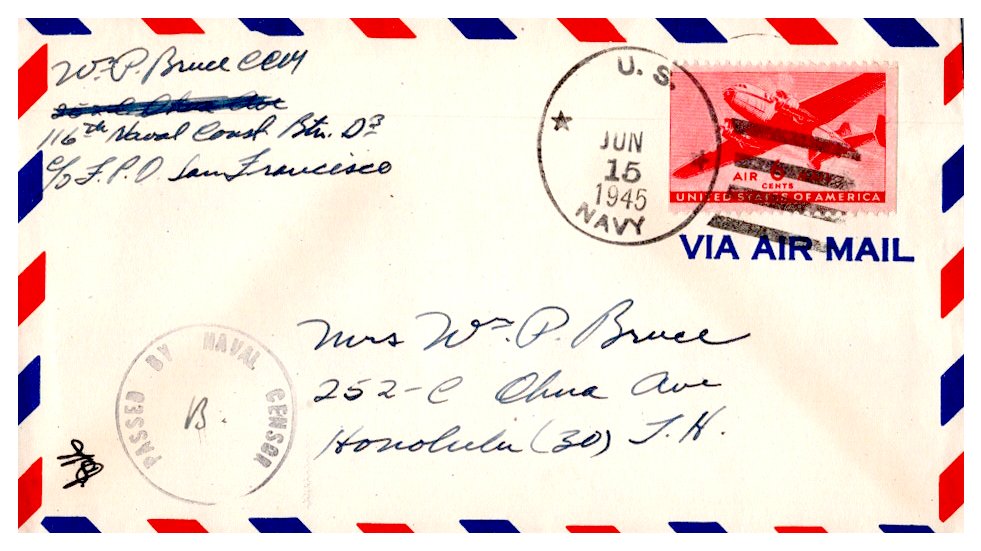 Wm P. Bruce CCM
116th Naval Const. Btn. D3
c/o F.P.O San Francisco
U. S.
JUN
15
1945
NAVY
AIR 6
CENTS
UNITED STATES OF AMERICA
VIA AIR MAIL
Mrs Wm P. Bruce
252-C Ohua Ave
Honolulu (30) T.H.
PASSED BY NAVAL CENSOR
B.